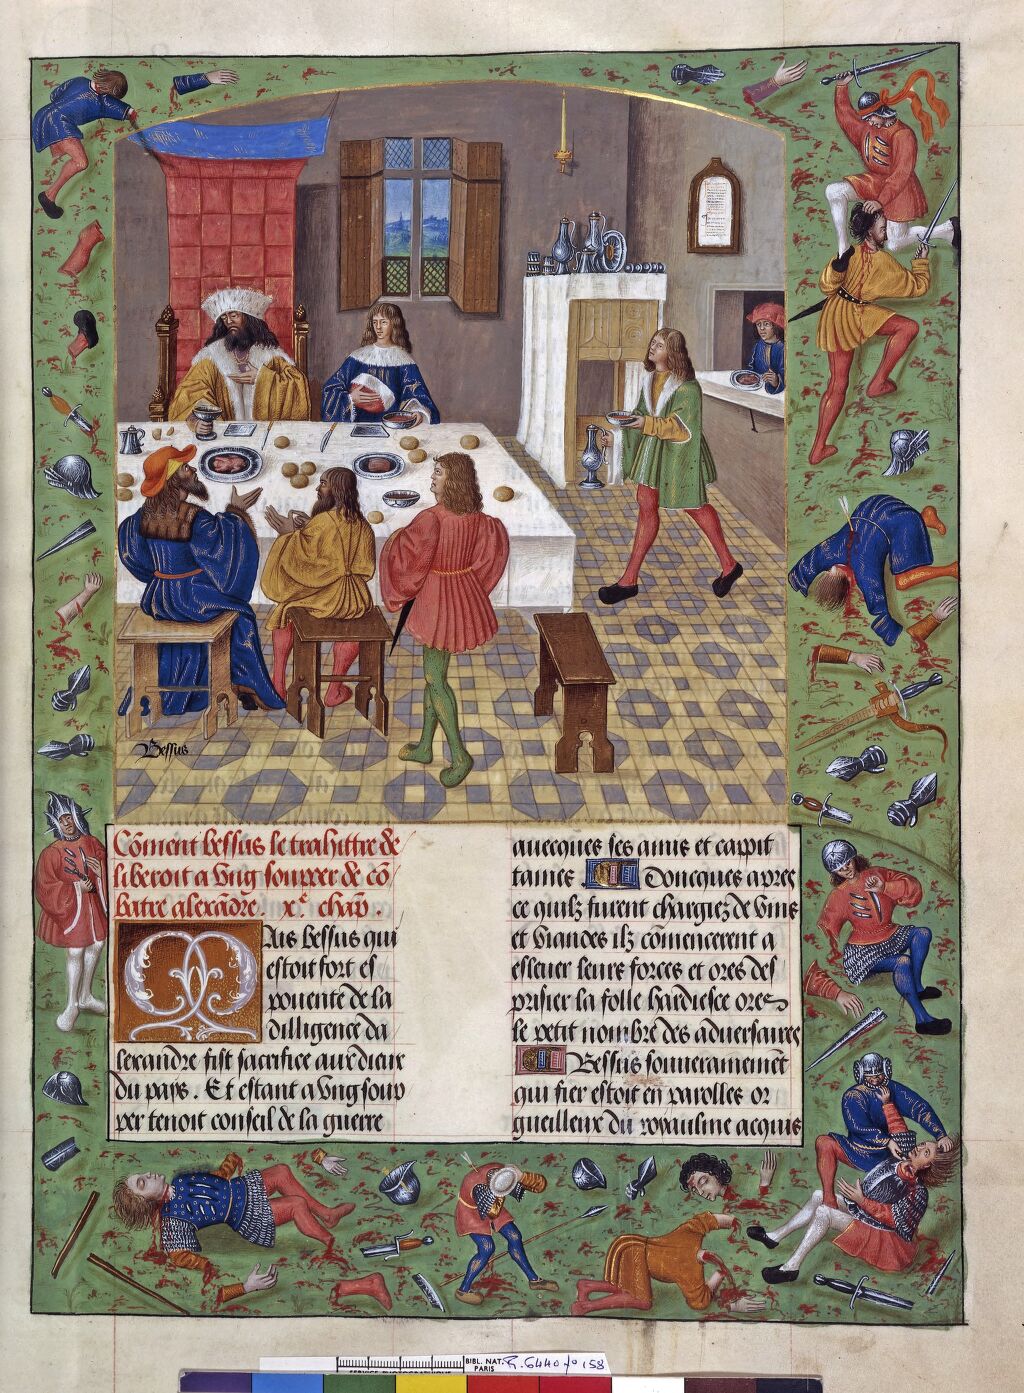 Bessus
Cōment bessus le trahittre de
liberoit a vng soupper de cō
batre alexādre. xe. chap.
Mais bessus qui
estoit fort es
pouente de la
dilligence da
lexandre fist sacrifice aux dieux
du pays. Et estant a vng soup
per tenoit conseil de la guerre
auecques ses amis et cappit
taines. Doncques apres
ce quilz furent chargiez de vins
et viandes ilz cōmencerent a
esleuer leurs forces et ores des
prisier la folle hardiesce ores
le petit nombre des aduersaires
Bessus souuerainemēt
qui fier estoit en parolles or
gueilleux du royaulme acquis
BIBL. NAT.
PARIS
SERVICE PHOTOGRAPHIQUE
R. 6440 fo 158